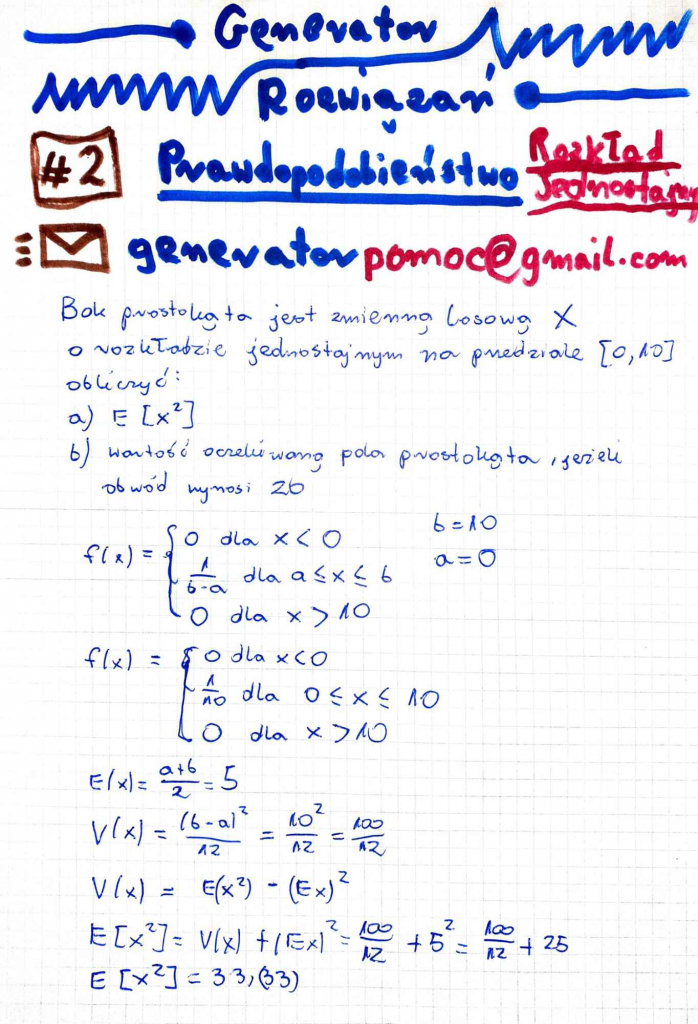 Generator
Rozwiązań
#2 Prawdopodobieństwo Rozkład Jednostajny
generatorpomoc@gmail.com
Bok prostokąta jest zmienną losową X
o rozkładzie jednostajnym na przedziale [0,10]
obliczyć:
a) E [x²]
b) wartość oczekiwaną pola prostokąta, jeżeli
obwód wynosi 26
f(x) = { 0 dla x < 0
1/(b-a) dla a ≤ x ≤ b
0 dla x > 10
b = 10
a = 0
f(x) = { 0 dla x < 0
1/10 dla 0 ≤ x ≤ 10
0 dla x > 10
E(x) = (a+b)/2 = 5
V(x) = (b-a)²/12 = 10²/12 = 100/12
V(x) = E(x²) - (Ex)²
E[x²] = V(x) + (Ex)² = 100/12 + 5² = 100/12 + 25
E [x²] = 33,(33)